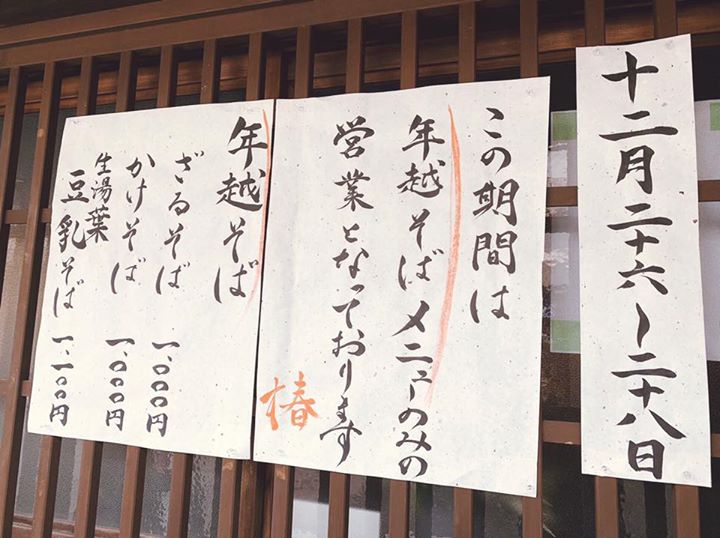 十二月二十六〜二十八日
この期間は
年越そばメニューのみの
営業となっております
椿
年越そば
ざるそば 一、〇〇〇円
かけそば 一、〇〇〇円
生湯葉
豆乳そば 一、一〇〇円